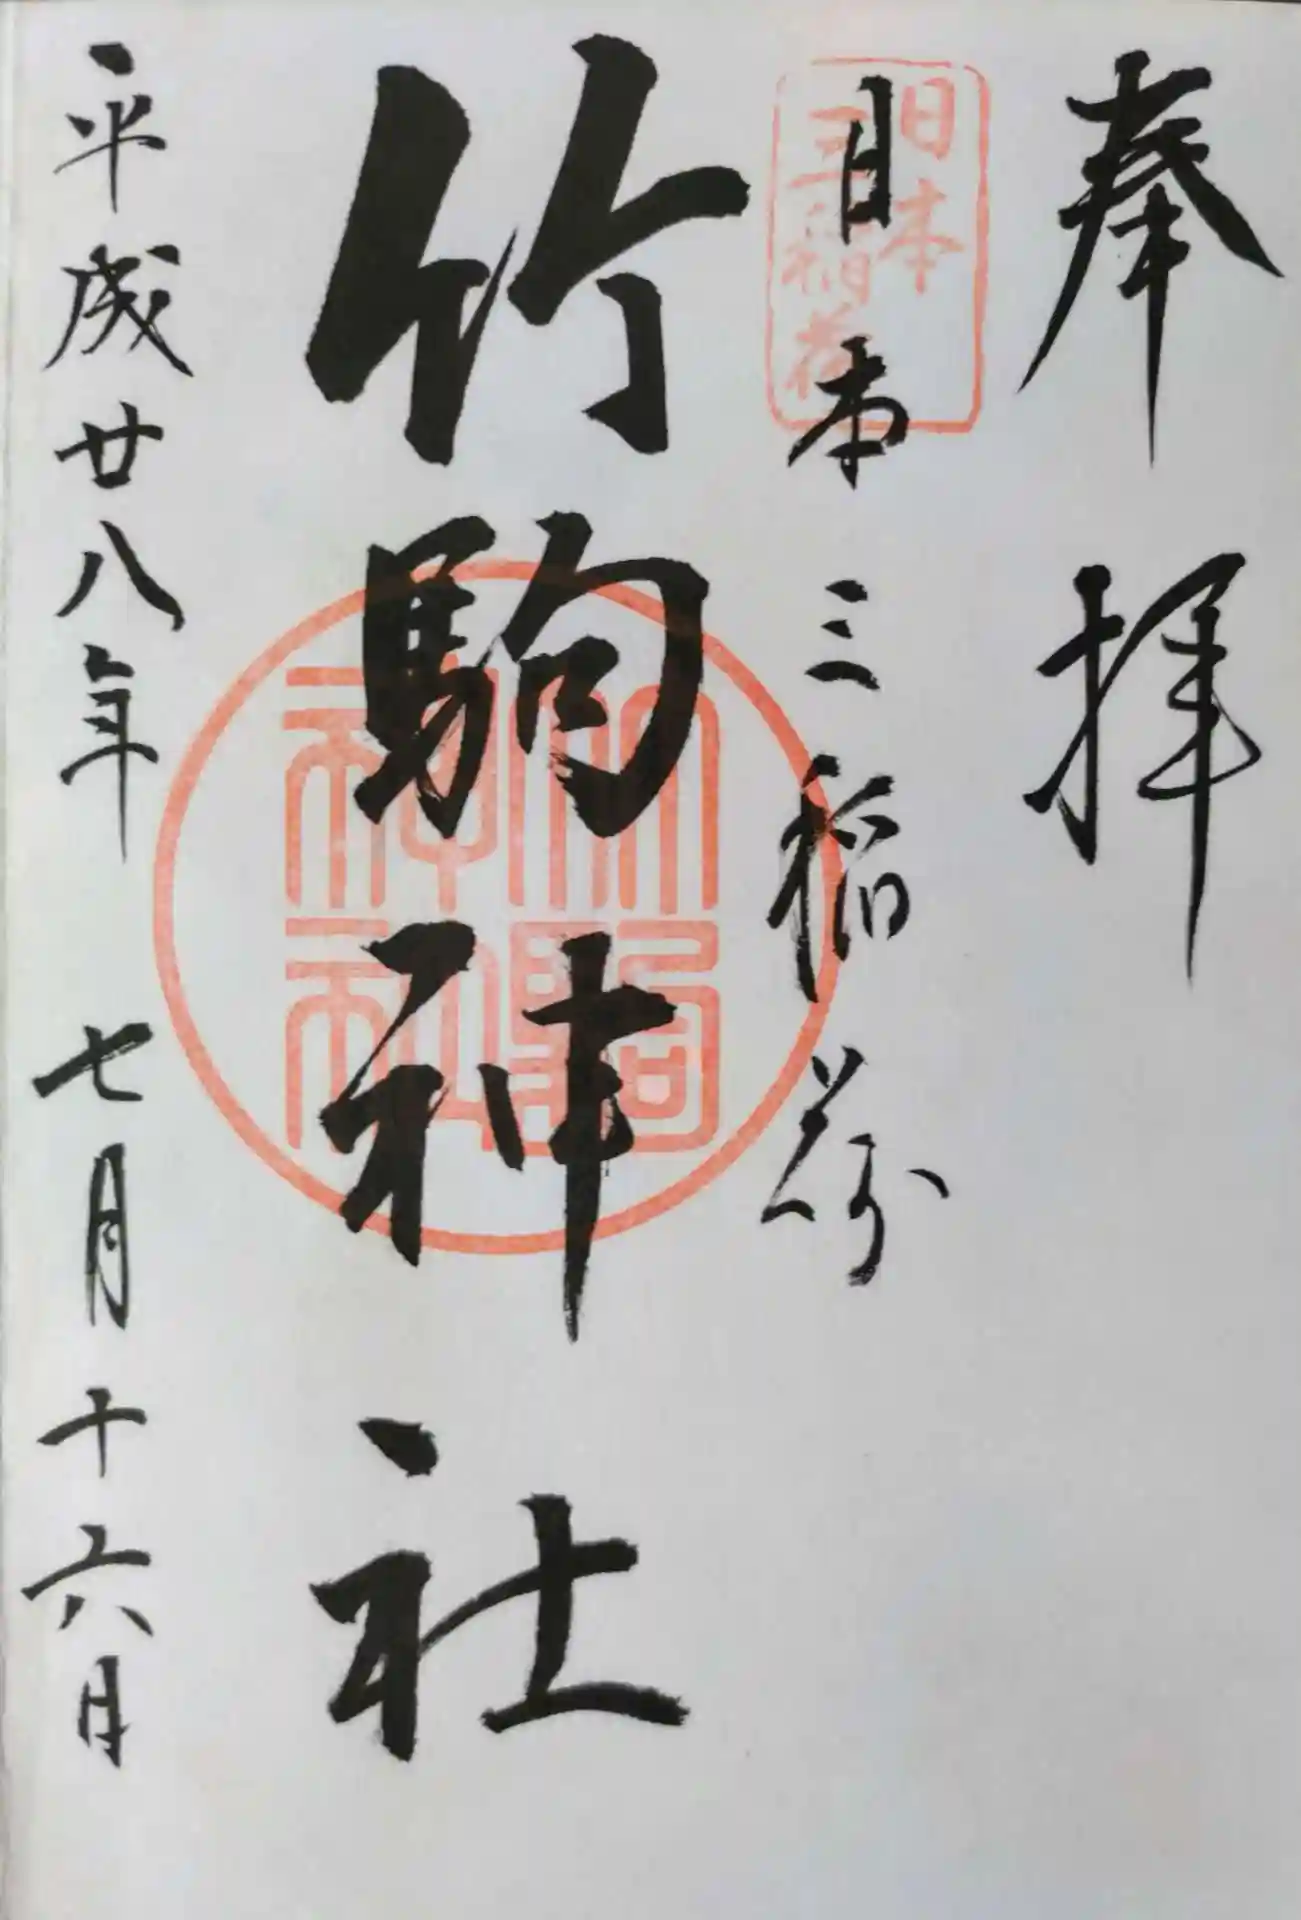 奉拝
日本三稲荷
日本
三稲荷
竹駒神社
竹駒
神社
平成廿八年 七月十六日